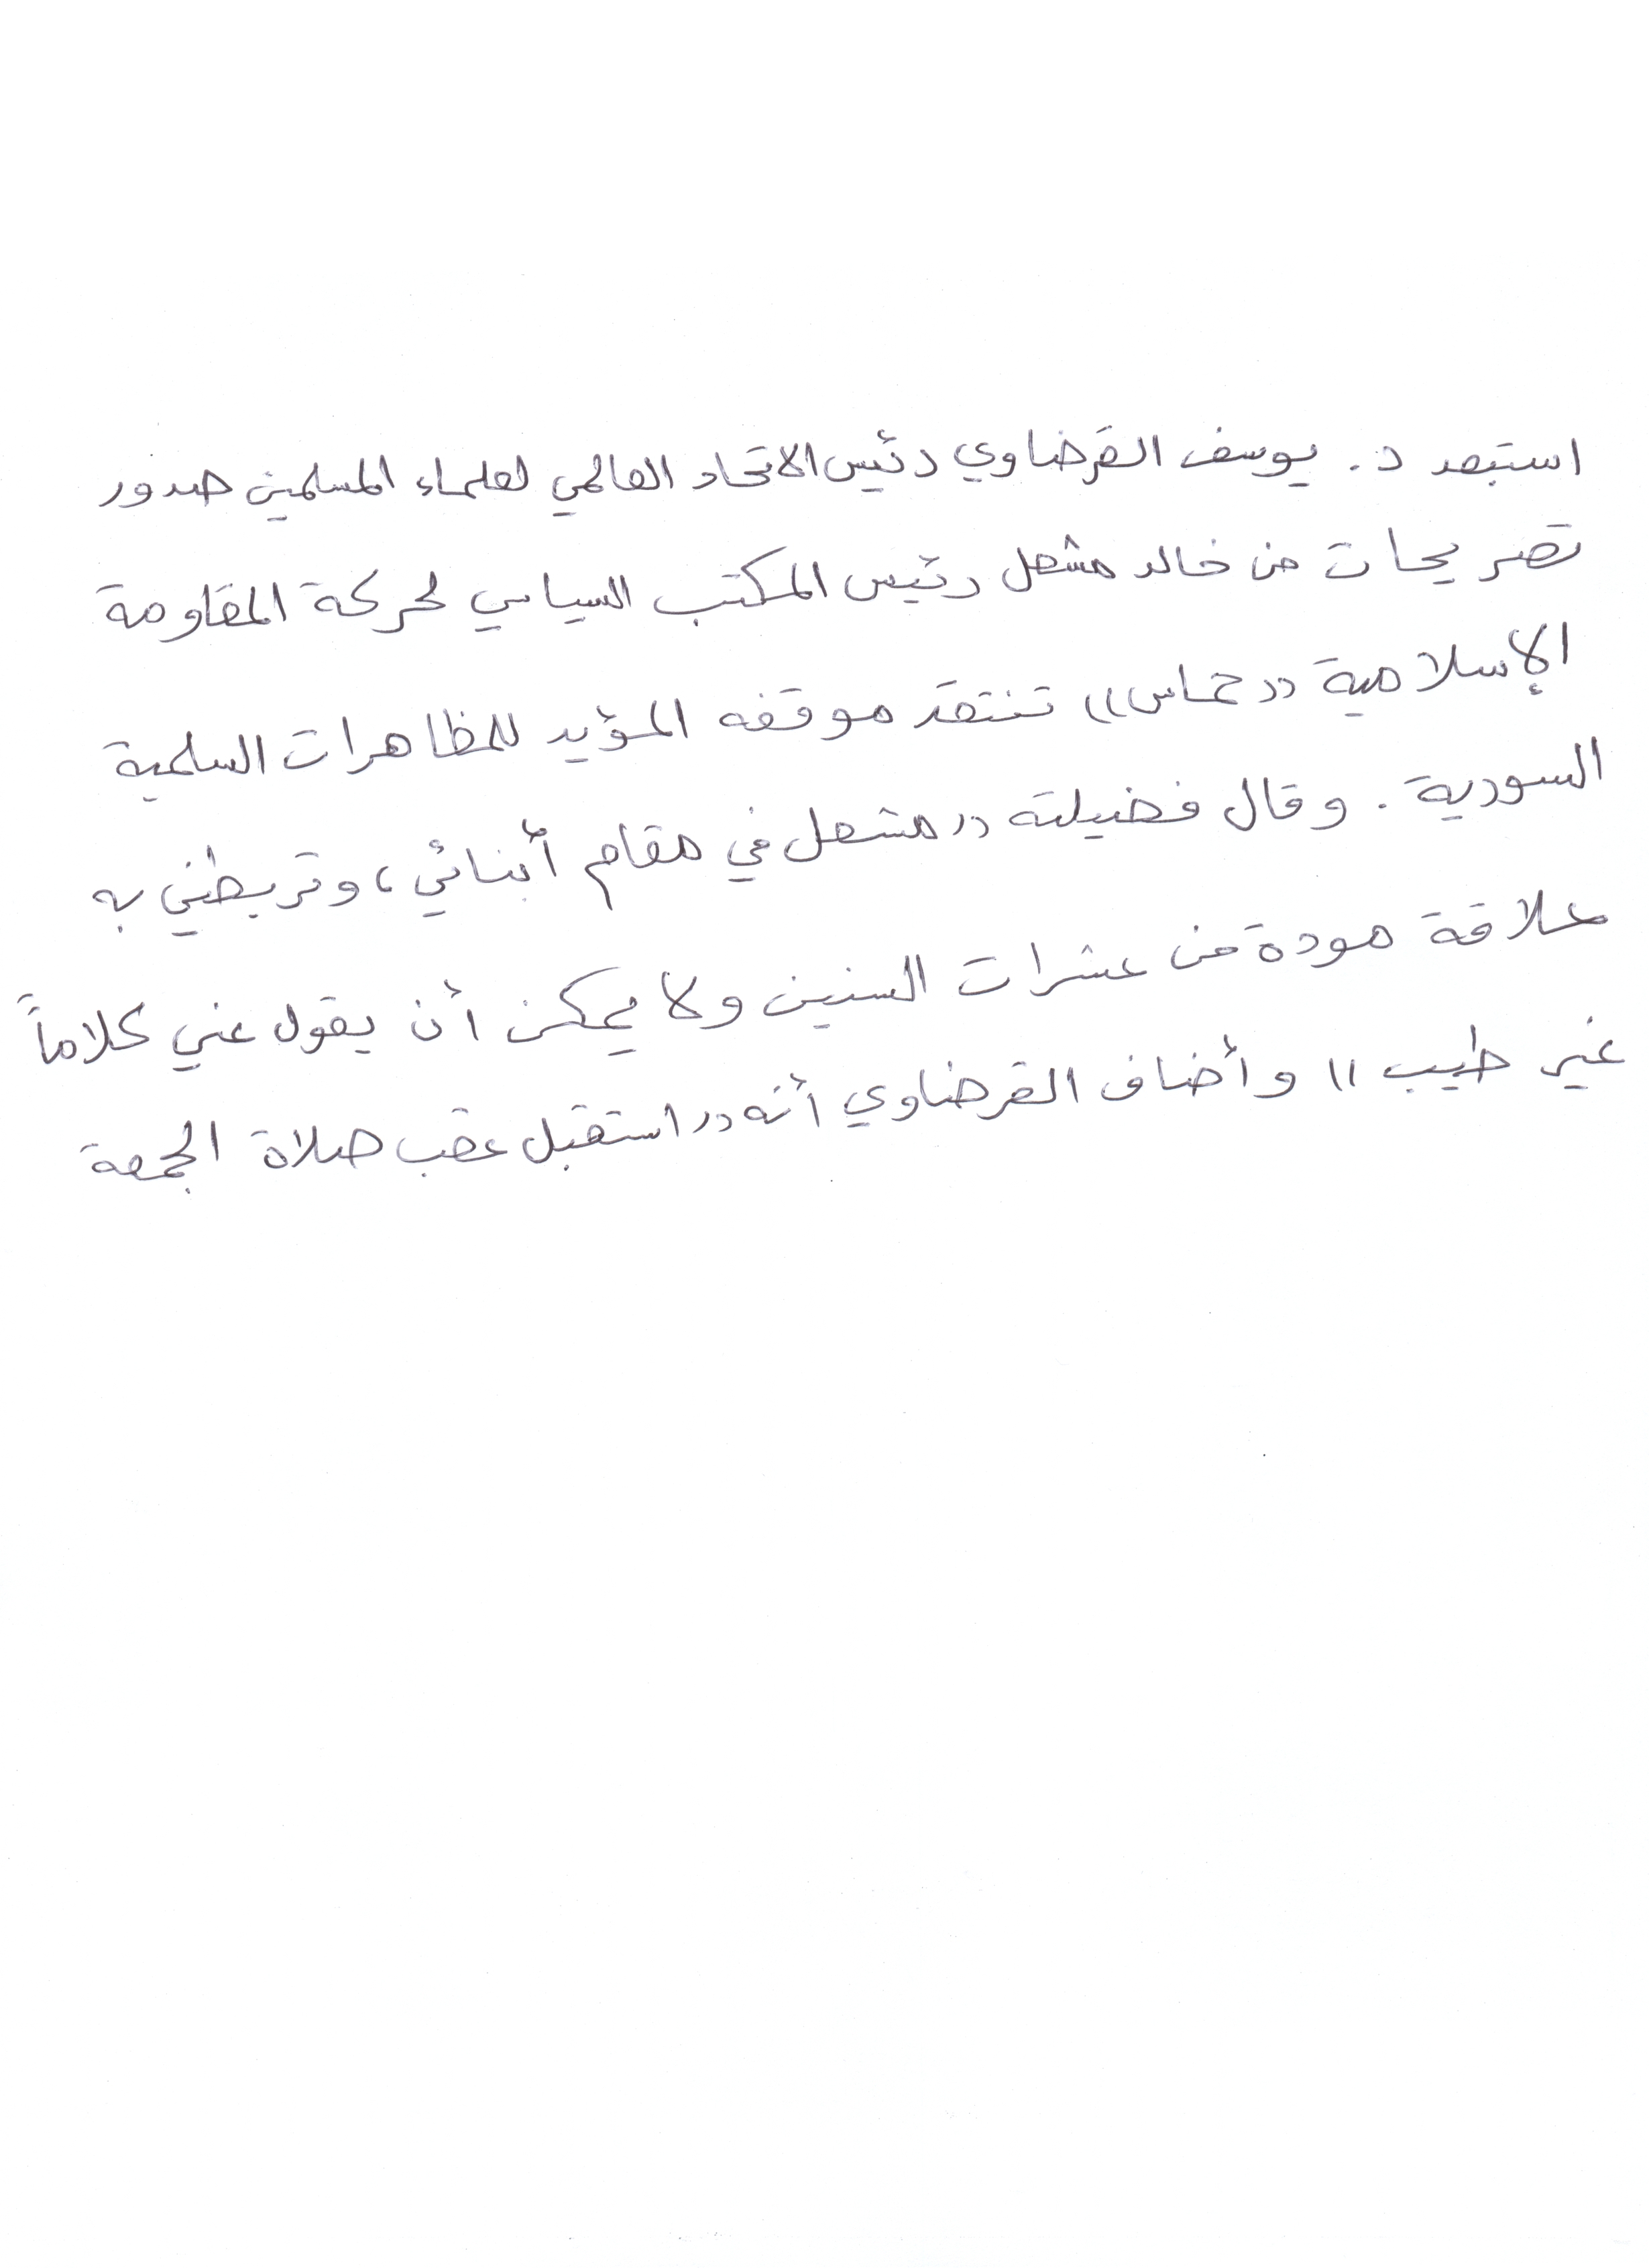 استبعد د. يوسف القرضاوي رئيس الاتحاد العالمي لعلماء المسلمين صدور
تصريحات من خالد مشعل رئيس المكتب السياسي لحركة المقاومة
الإسلامية ((حماس)) تنتقد موقفه المؤيد للمظاهرات السلمية
السورية . وقال فضيلته ((مشعل في مقام أبنائي، وتربطني به
علاقة مودة من عشرات السنين ولا يمكن أن يقول عني كلاماً
غير طيب)) وأضاف القرضاوي أنه ((استقبل عقب صلاة الجمعة